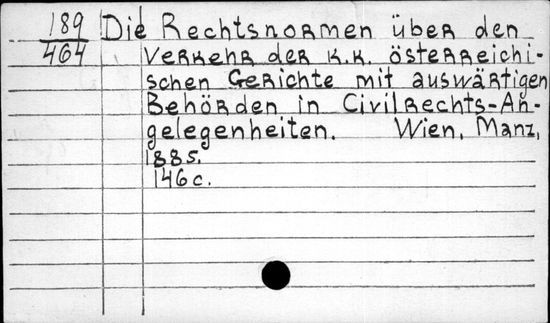 189 Die Rechtsnormen über den
464 Verkehr der k.k. österreichi-
schen Gerichte mit auswärtigen
Behörden in Civilrechts-An-
gelegenheiten. Wien, Manz,
1885.
146 c.